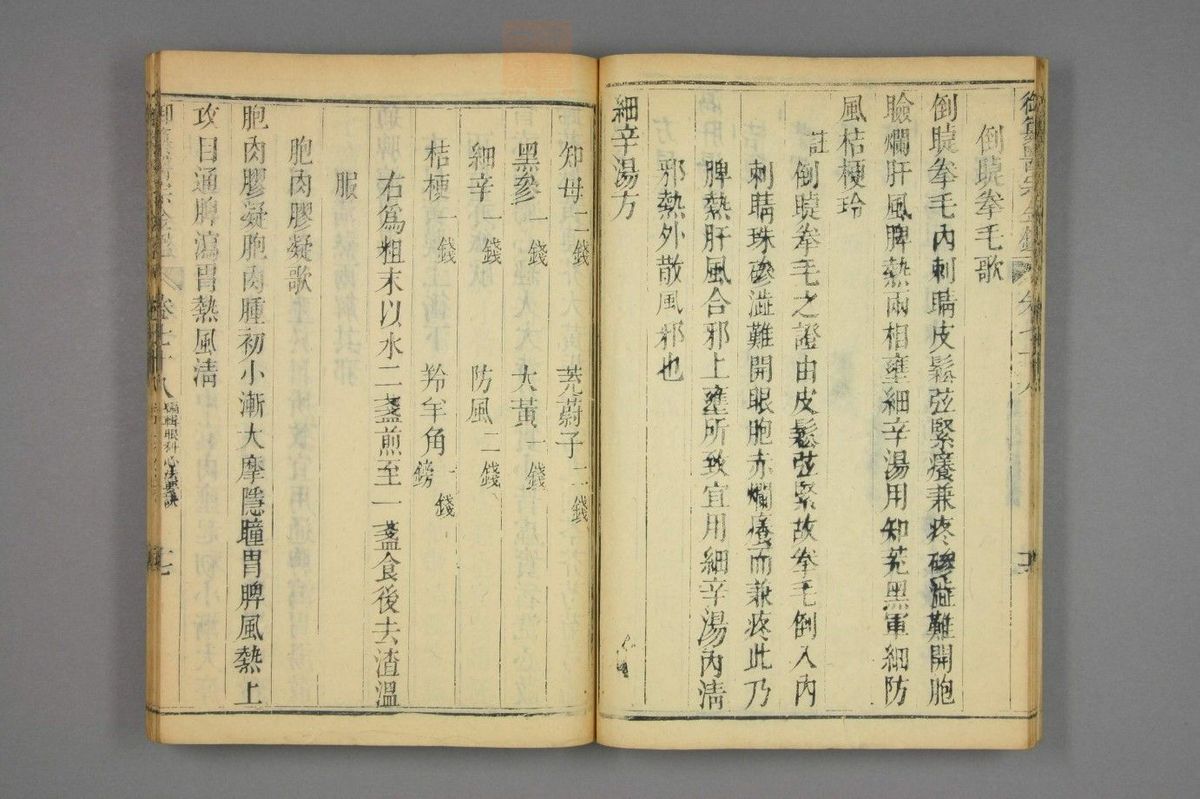 倒睫拳毛歌
倒睫拳毛內刺睛皮鬆弦緊癢兼疼磣澁難開胞
瞼爛肝風脾熱兩相壅細辛湯用知茺黑軍細防
風桔梗玲
註
倒睫拳毛之證由皮鬆弦緊故拳毛倒入內
刺睛珠磣澁難開眼胞赤爛癢而兼疼此乃
脾熱肝風合邪上壅所致宜用細辛湯內淸
邪熱外散風邪也
細辛湯方
知母二錢 茺蔚子二錢
黑參一錢 大黃一錢
細辛一錢 防風二錢
桔梗一錢 羚羊角鎊一錢
右爲粗末以水二盞煎至一盞食後去渣溫
服
胞肉膠凝歌
胞肉膠凝胞肉腫初小漸大摩隱瞳胃脾風熱上
攻目通脾瀉胃熱風淸
卷七十八
編輯眼科心法要訣